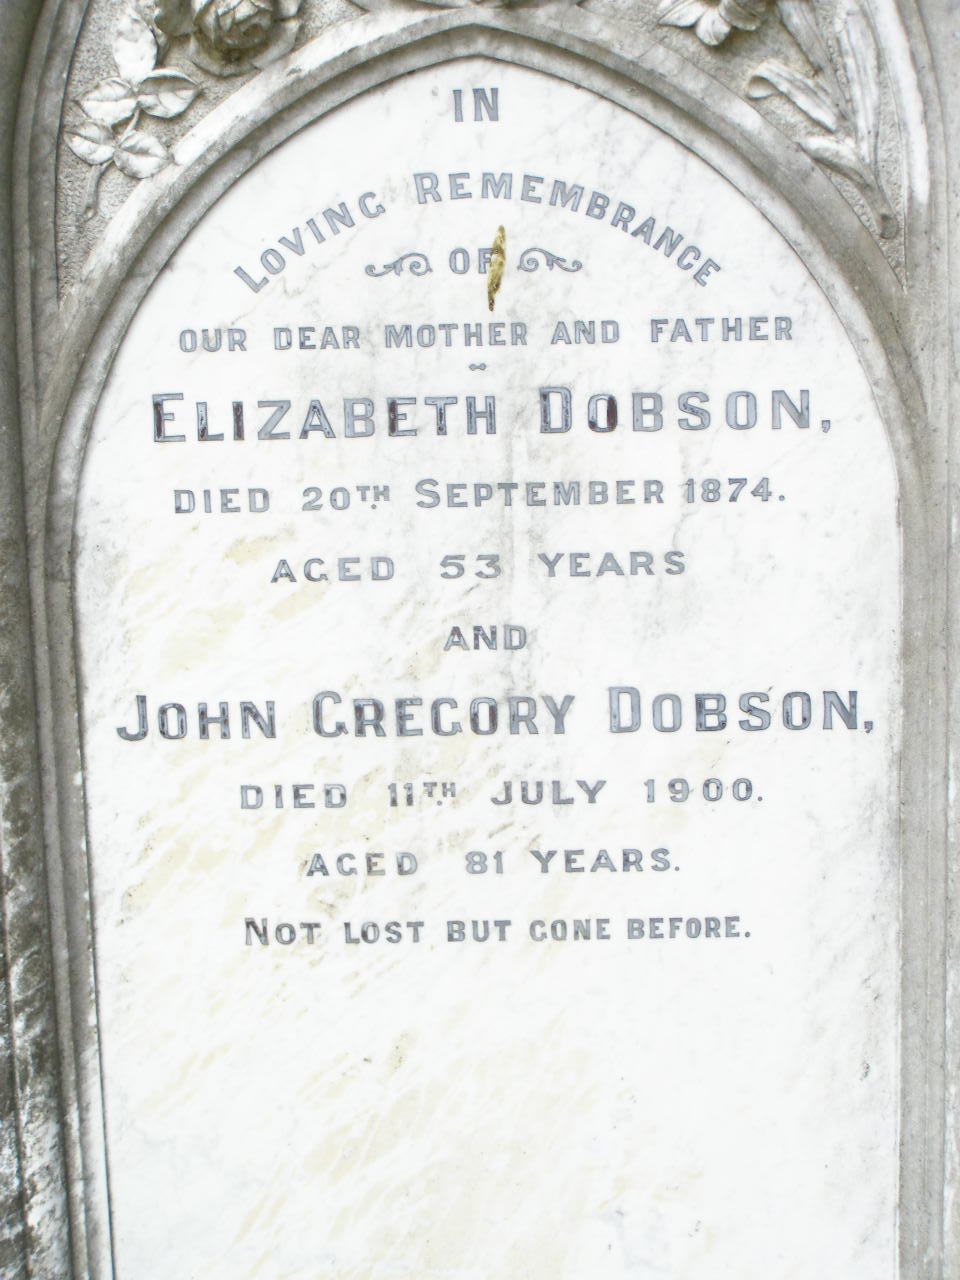 IN
LOVING REMEMBRANCE
OF
OUR DEAR MOTHER AND FATHER
ELIZABETH DOBSON,
DIED 20TH SEPTEMBER 1874.
AGED 53 YEARS
AND
JOHN GREGORY DOBSON,
DIED 11TH JULY 1900.
AGED 81 YEARS.
NOT LOST BUT GONE BEFORE.